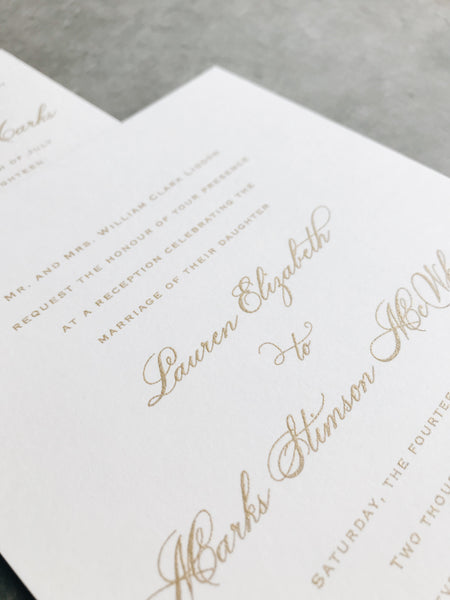 Marks
of July
eighteen
Mr. and Mrs. William Clark Ligon
request the honour of your presence
at a reception celebrating the
marriage of their daughter
Lauren Elizabeth
to
Marks Stimson
Saturday, the
Two